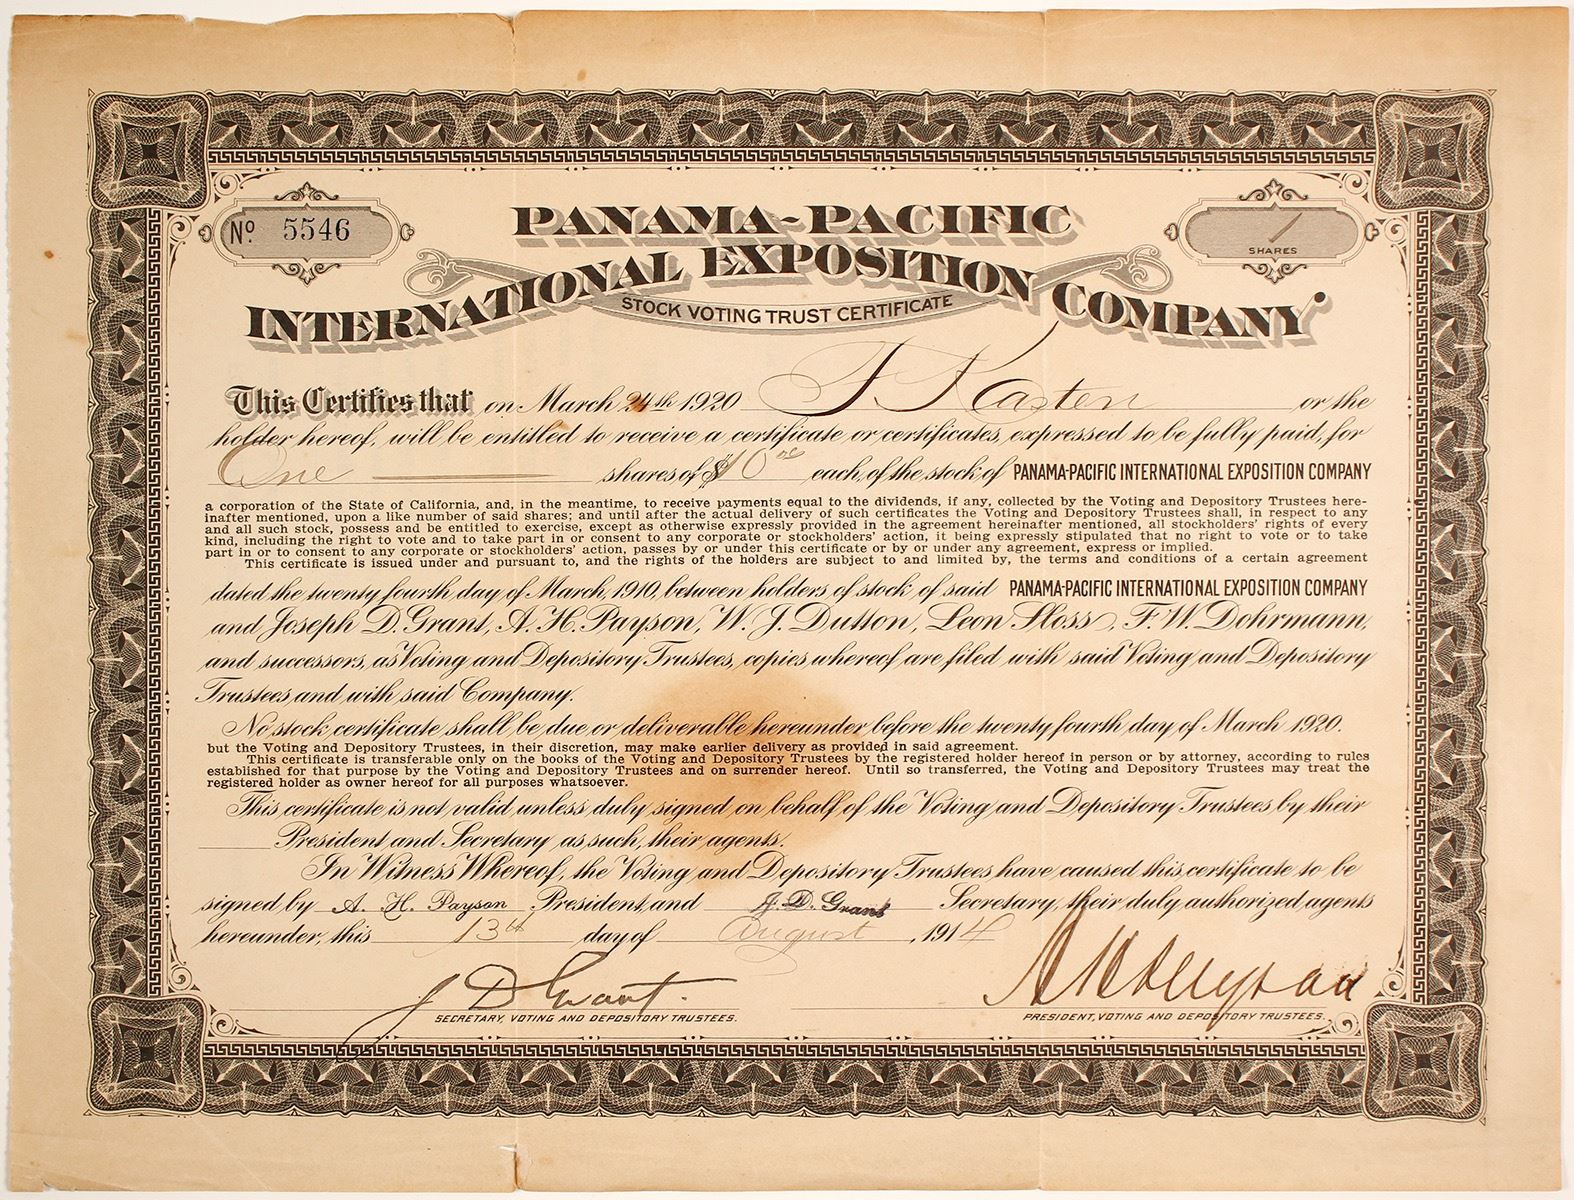 No. 5546
1
SHARES
PANAMA-PACIFIC
INTERNATIONAL EXPOSITION COMPANY
STOCK VOTING TRUST CERTIFICATE
This Certifies that on March 24th 1920 F Kasten or the
holder hereof, will be entitled to receive a certificate or certificates, expressed to be fully paid, for
One shares of $10 00 each, of the stock of PANAMA-PACIFIC INTERNATIONAL EXPOSITION COMPANY
a corporation of the State of California, and, in the meantime, to receive payments equal to the dividends, if any, collected by the Voting and Depository Trustees here-
inafter mentioned, upon a like number of said shares; and until after the actual delivery of such certificates the Voting and Depository Trustees shall, in respect to any
and all such stock, possess and be entitled to exercise, except as otherwise expressly provided in the agreement hereinafter mentioned, all stockholders' rights of every
kind, including the right to vote and to take part in or consent to any corporate or stockholders' action, it being expressly stipulated that no right to vote or to take
part in or to consent to any corporate or stockholders' action, passes by or under this certificate or by or under any agreement, express or implied.
This certificate is issued under and pursuant to, and the rights of the holders are subject to and limited by, the terms and conditions of a certain agreement
dated the twenty fourth day of March, 1910, between holders of stock of said PANAMA-PACIFIC INTERNATIONAL EXPOSITION COMPANY
and Joseph D. Grant, A. H. Payson, W. J. Dutton, Leon Sloss, F. W. Dohrmann,
and successors, as Voting and Depository Trustees, copies whereof are filed with said Voting and Depository
Trustees and with said Company.
No stock certificate shall be due or deliverable hereunder before the twenty fourth day of March 1920.
but the Voting and Depository Trustees, in their discretion, may make earlier delivery as provided in said agreement.
This certificate is transferable only on the books of the Voting and Depository Trustees by the registered holder hereof in person or by attorney, according to rules
established for that purpose by the Voting and Depository Trustees and on surrender hereof. Until so transferred, the Voting and Depository Trustees may treat the
registered holder as owner hereof for all purposes whatsoever.
This certificate is not valid unless duly signed on behalf of the Voting and Depository Trustees by their
President and Secretary as such, their agents.
In Witness Whereof, the Voting and Depository Trustees have caused this certificate to be
signed by A. H. Payson President, and J. D. Grant Secretary, their duly authorized agents
hereunder, this 13th day of August, 1914
J D Grant. A H Payson
SECRETARY, VOTING AND DEPOSITORY TRUSTEES. PRESIDENT, VOTING AND DEPOSITORY TRUSTEES.